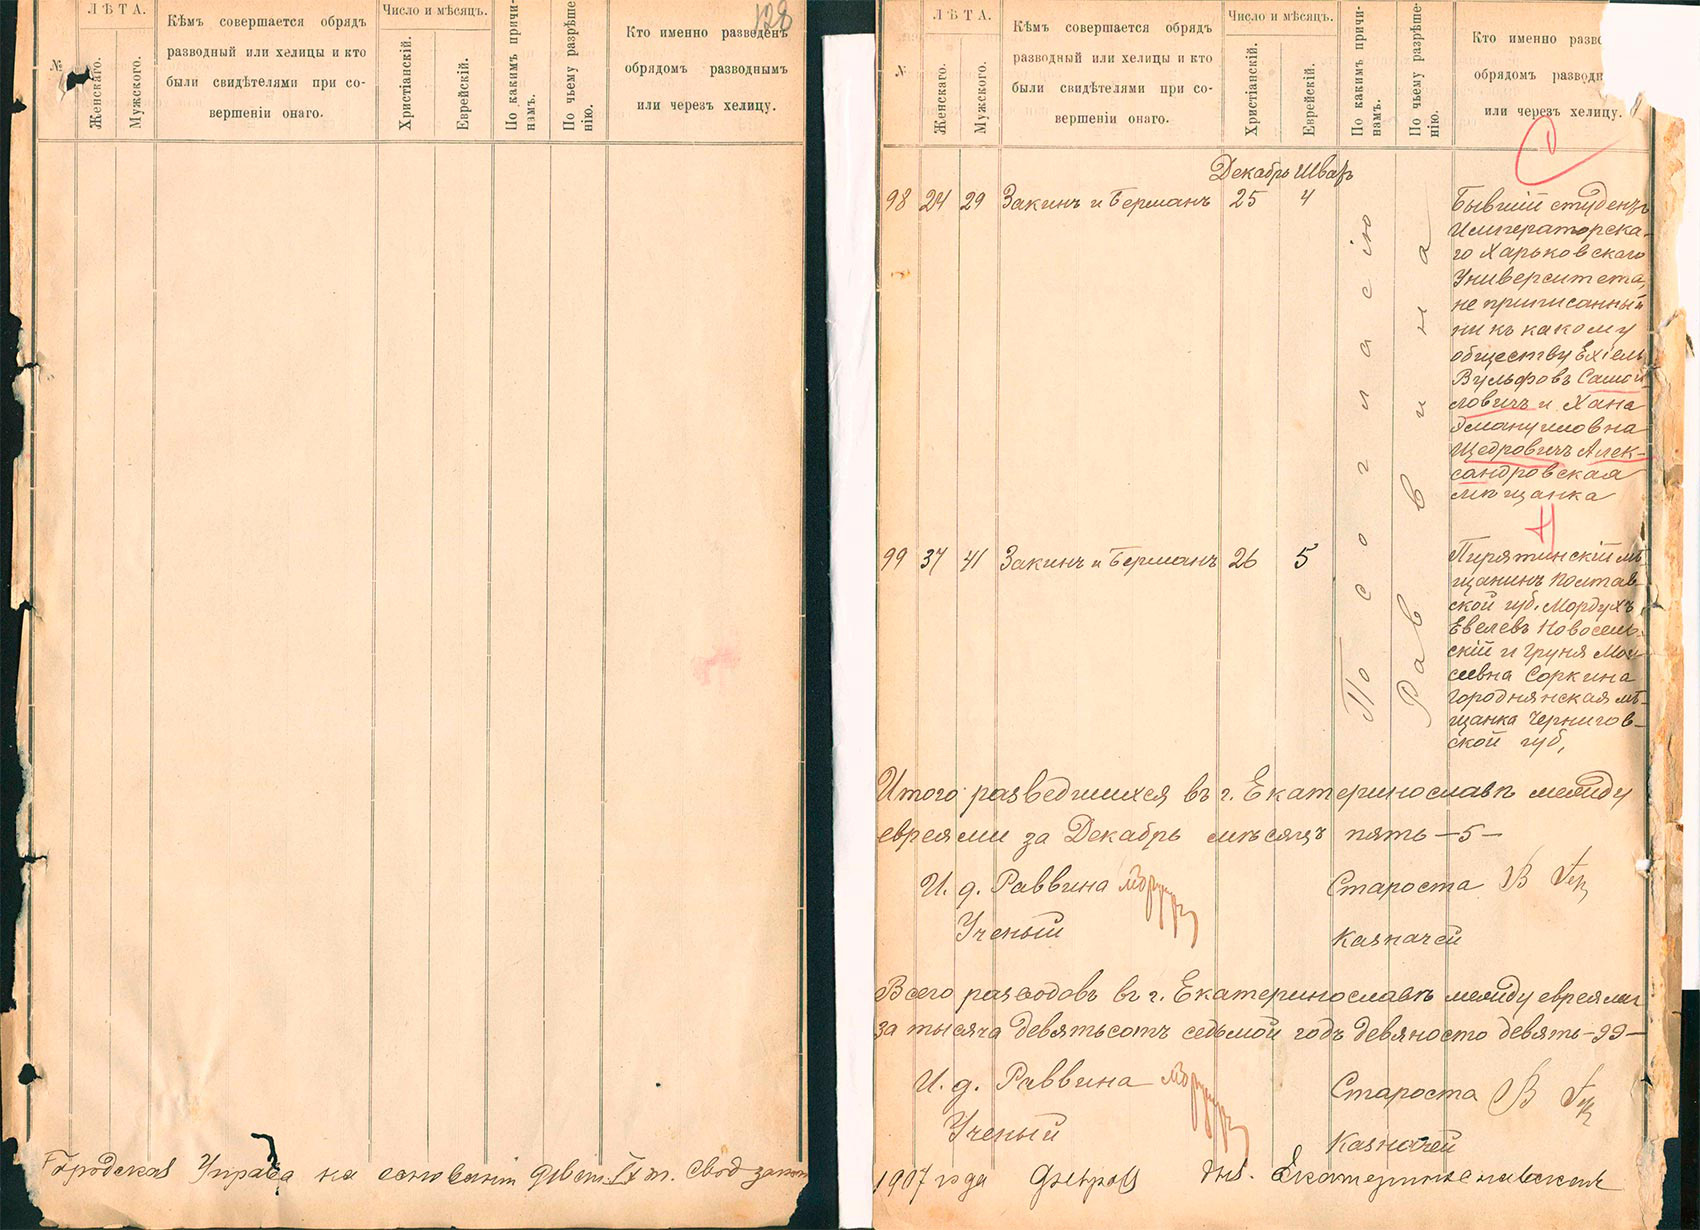 128
№
ЛѢТА.
Женскаго.
Мужского.
Кѣмъ совершается обрядъ
разводный или хелицы и кто
были свидѣтелями при со-
вершеніи онаго.
Число и мѣсяцъ.
Христіанскій.
Еврейскій.
По какимъ причи-
намъ.
По чьему разрѣше-
нію.
Кто именно разведенъ
обрядомъ разводнымъ
или черезъ хелицу.
Городская Управа на основаніи IX т. Свод
№
ЛѢТА.
Женскаго.
Мужского.
Кѣмъ совершается обрядъ
разводный или хелицы и кто
были свидѣтелями при со-
вершеніи онаго.
Число и мѣсяцъ.
Христіанскій.
Еврейскій.
По какимъ причи-
намъ.
По чьему разрѣше-
нію.
Кто именно разве
обрядомъ разводн
или черезъ хелицу.
Декабрь Шватъ
98 24 29 Закинъ и Берманъ 25 4
По согласію
Раввина
Бывшій студентъ
Императорска-
го Харьковскаго
Университета,
не приписанный
ни къ какому
обществу Ехіель
Вульфовъ Самой
ловичъ и Хана
Эмануиловна
Щедровичъ Алек-
сандровская
мѣщанка
99 37 41 Закинъ и Берманъ 26 5
Пирятинскій мѣ-
щанинъ Полтав-
ской губ. Мордухъ
Евелевъ Новосель-
скій и Груня Мои
сеевна Соркина
Городнянская мѣ-
щанка Чернигов-
ской губ,
Итого разведшихся въ г. Екатеринославѣ между
евреями за Декабрь мѣсяцъ пять —5—
И. д. Раввина Староста
Ученый Казначей
Всего разводовъ въ г. Екатеринославѣ между евреями
за тысяча девятьсотъ седьмой годъ девяносто девять —99—
И. д. Раввина Староста
Ученый Казначей
1907 года дня. Екатеринославская